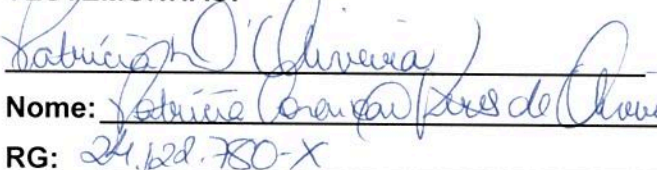 Patrícia D'Oliveira
Nome: Patricia Pires de Olivei
RG: 24.122.780-X